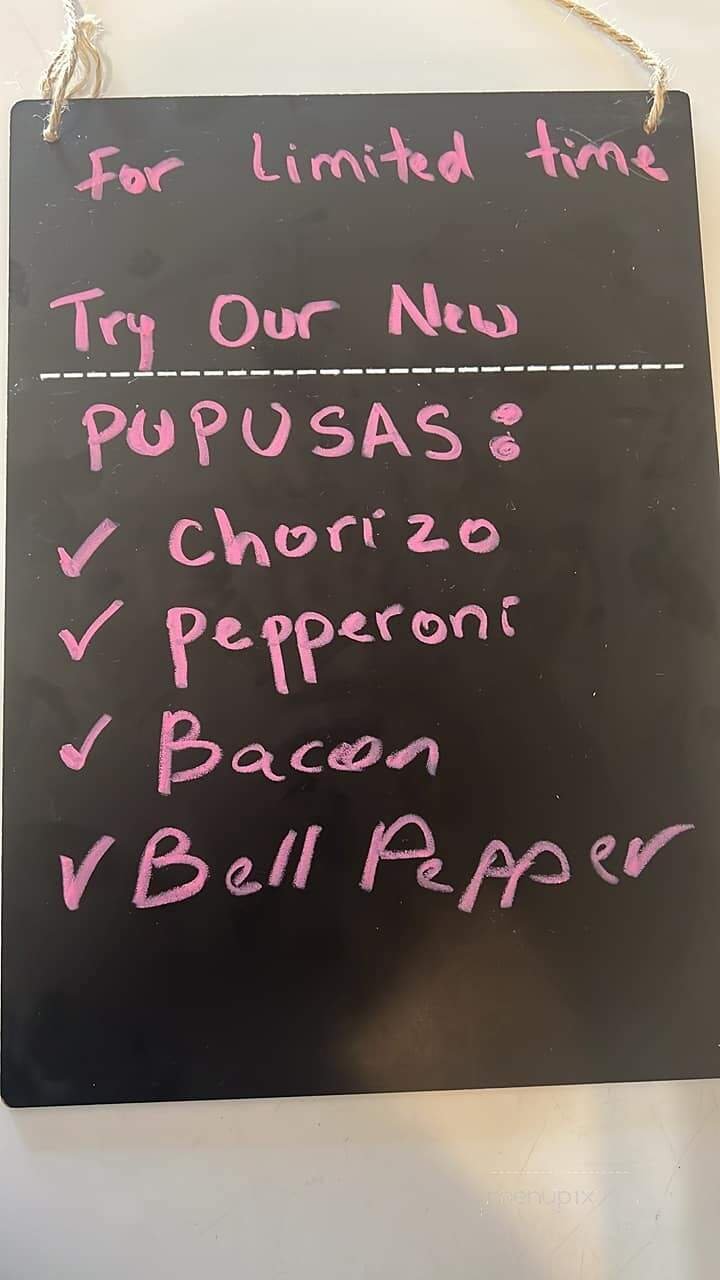 For Limited time
Try Our New
PUPUSAS:
✓ Chorizo
✓ Pepperoni
✓ Bacon
✓ Bell Pepper
menupix